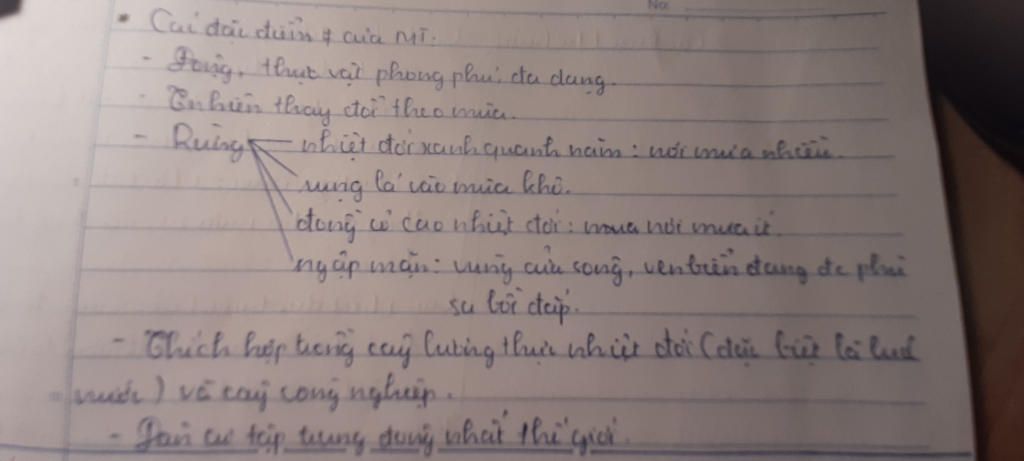 No:
• Các đặc điểm # của MT.
- Động, thực vật phong phú, đa dạng.
- Tnhiên thay đổi theo mùa.
- Rừng nhiệt đới xanh quanh năm: nơi mưa nhiều.
rụng lá vào mùa khô.
đồng cỏ cao nhiệt đới: mưa nơi mưa ít.
ngập mặn: vùng cửa sông, ven biển đang đc phù
sa bồi đắp.
- Thích hợp trồng cây lương thực nhiệt đới (đặc biệt là lúa
nước) và cây công nghiệp.
- Dân cư tập trung đông nhất thế giới.